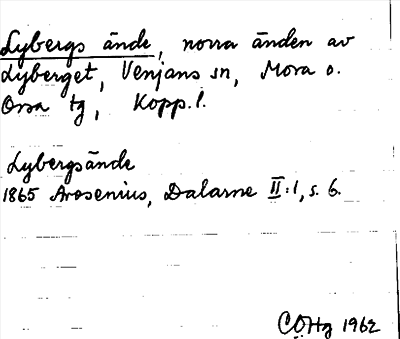 Lybergs ände, norra änden av
Lyberget, Venjans sn, Mora o.
Orsa tg, Kopp. l.
Lybergsände
1865 Arosenius, Dalarne II:1, s. 6.
CÖHg 1962